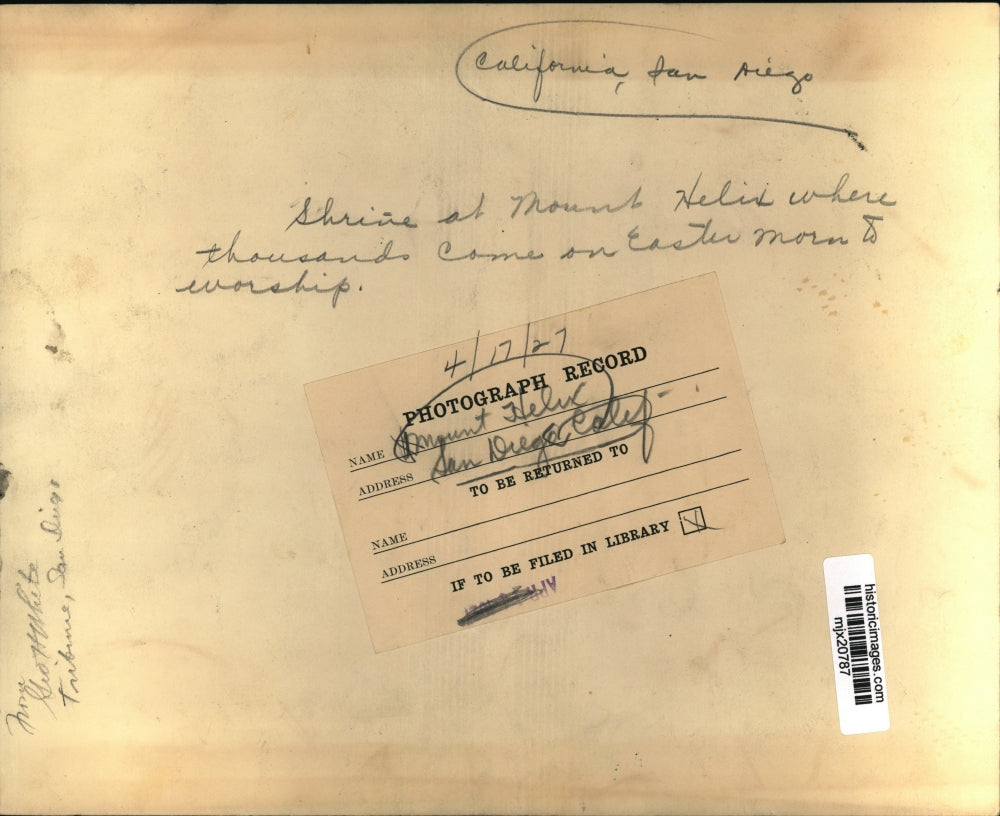 California, San Diego
Shrine at Mount Helix where
thousands come on Easter morn to
worship.
4/17/27
PHOTOGRAPH RECORD
NAME Mount Helix
ADDRESS San Diego Calif-
TO BE RETURNED TO
NAME
ADDRESS
IF TO BE FILED IN LIBRARY
From
Geo H White
Tribune, San Diego
historicimages.com
mjx20787